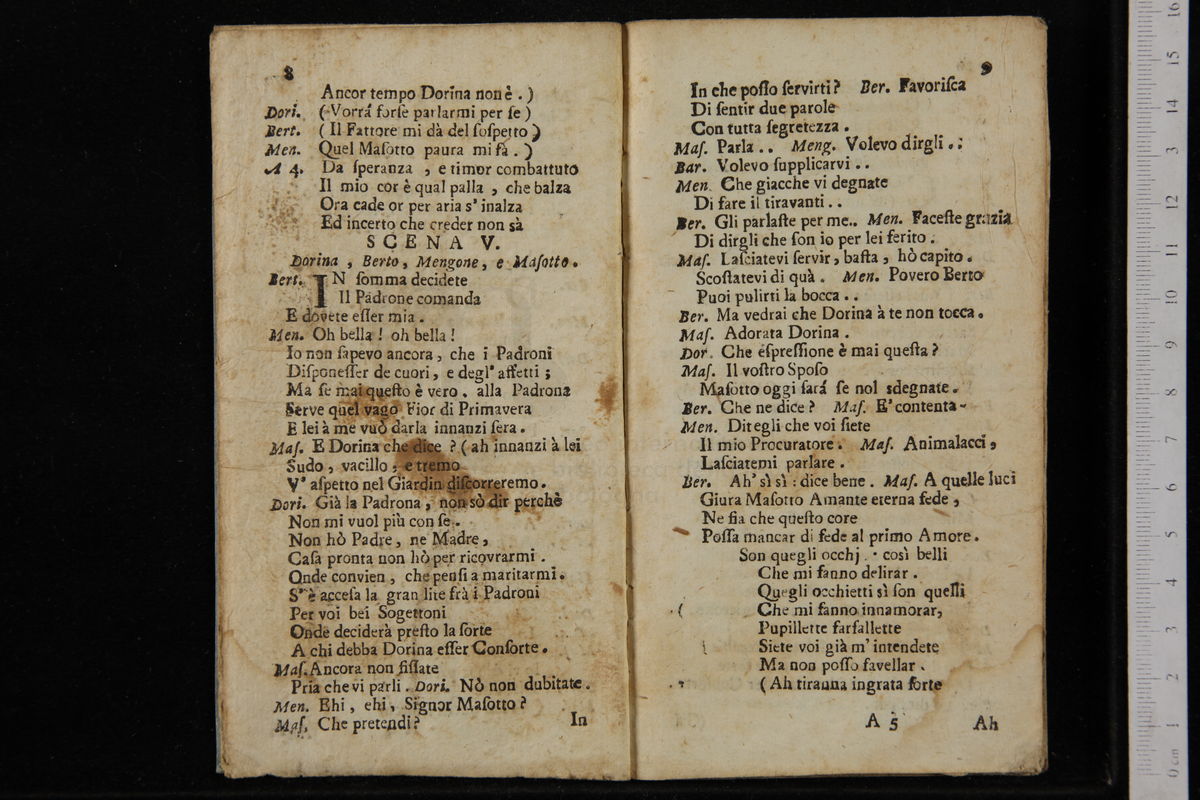 8
Ancor tempo Dorina non è . )
Dori. ( Vorrá forſe parlarmi per ſe )
Bert. ( Il Fattore mi dà del ſoſpetto )
Men. Quel Maſotto paura mi fà . )
A 4. Da ſperanza , e timor combattuto
Il mio cor è qual palla , che balza
Ora cade or per aria s' inalza
Ed incerto che creder non sà
SCENA V.
Dorina , Berto, Mengone, e Maſotto.
Bert. IN ſomma decidete
Il Padrone comanda
E dovete eſſer mia .
Men. Oh bella ! oh bella !
Io non ſapevo ancora, che i Padroni
Diſponeſſer de cuori, e degl' affetti ;
Ma ſe mai queſto è vero . alla Padrona
Serve quel vago Fior di Primavera
E lei à me vuò darla innanzi ſera .
Maſ. E Dorina che dice ? ( ah innanzi à lei
Sudo , vacillo , e tremo
V' aſpetto nel Giardin diſcorreremo .
Dori. Già la Padrona , non sò dir perchè
Non mi vuol più con ſe .
Non hò Padre, ne Madre,
Caſa pronta non hò per ricovrarmi .
Onde convien , che penſi a maritarmi.
S' è acceſa la gran lite frà i Padroni
Per voi bei Sogettoni
Onde deciderà preſto la ſorte
A chi debba Dorina eſſer Conſorte.
Maſ. Ancora non fiſſate
Pria che vi parli . Dori. Nò non dubitate .
Men. Ehi , ehi , Signor Maſotto ?
Maſ. Che pretendi ?
In
9
In che poſſo ſervirti ? Ber. Favoriſca
Di ſentir due parole
Con tutta ſegretezza .
Maſ. Parla . . Meng. Volevo dirgli . :
Bar. Volevo ſupplicarvi . .
Men. Che giacche vi degnate
Di fare il tiravanti . .
Ber. Gli parlaſte per me.. Men. Faceſte grazia
Di dirgli che ſon io per lei ferito .
Maſ. Laſciatevi ſervir, baſta , hò capito .
Scoſtatevi di quà . Men. Povero Berto
Puoi pulirti la bocca . .
Ber. Ma vedrai che Dorina à te non tocca .
Maſ. Adorata Dorina .
Dor. Che eſpreſſione è mai queſta ?
Maſ. Il voſtro Spoſo
Maſotto oggi ſará ſe nol sdegnate .
Ber. Che ne dice ? Maſ. E' contenta-
Men. Ditegli che voi ſiete
Il mio Procuratore . Maſ. Animalacci ,
Laſciatemi parlare .
Ber. Ah' sì sì : dice bene . Maſ. A quelle luci
Giura Maſotto Amante eterna fede ,
Ne fia che queſto core
Poſſa mancar di fede al primo Amore .
Son quegli occhj . · così belli
Che mi fanno delirar .
Quegli occhietti sì ſon quelli
( Che mi fanno innamorar,
Pupillette farfallette
Siete voi già m' intendete
Ma non poſſo favellar .
( Ah tiranna ingrata ſorte
A 5 Ah